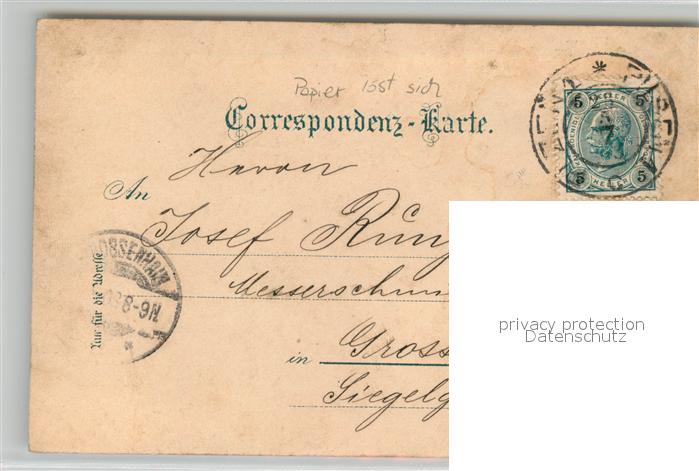 Papier löst sich
Correspondenz-Karte.
Herrn
An
Josef
Messerschm
in Gross
Siegelg
Nur für die Adresse
8-9N
5 5
5 5
privacy protection
Datenschutz